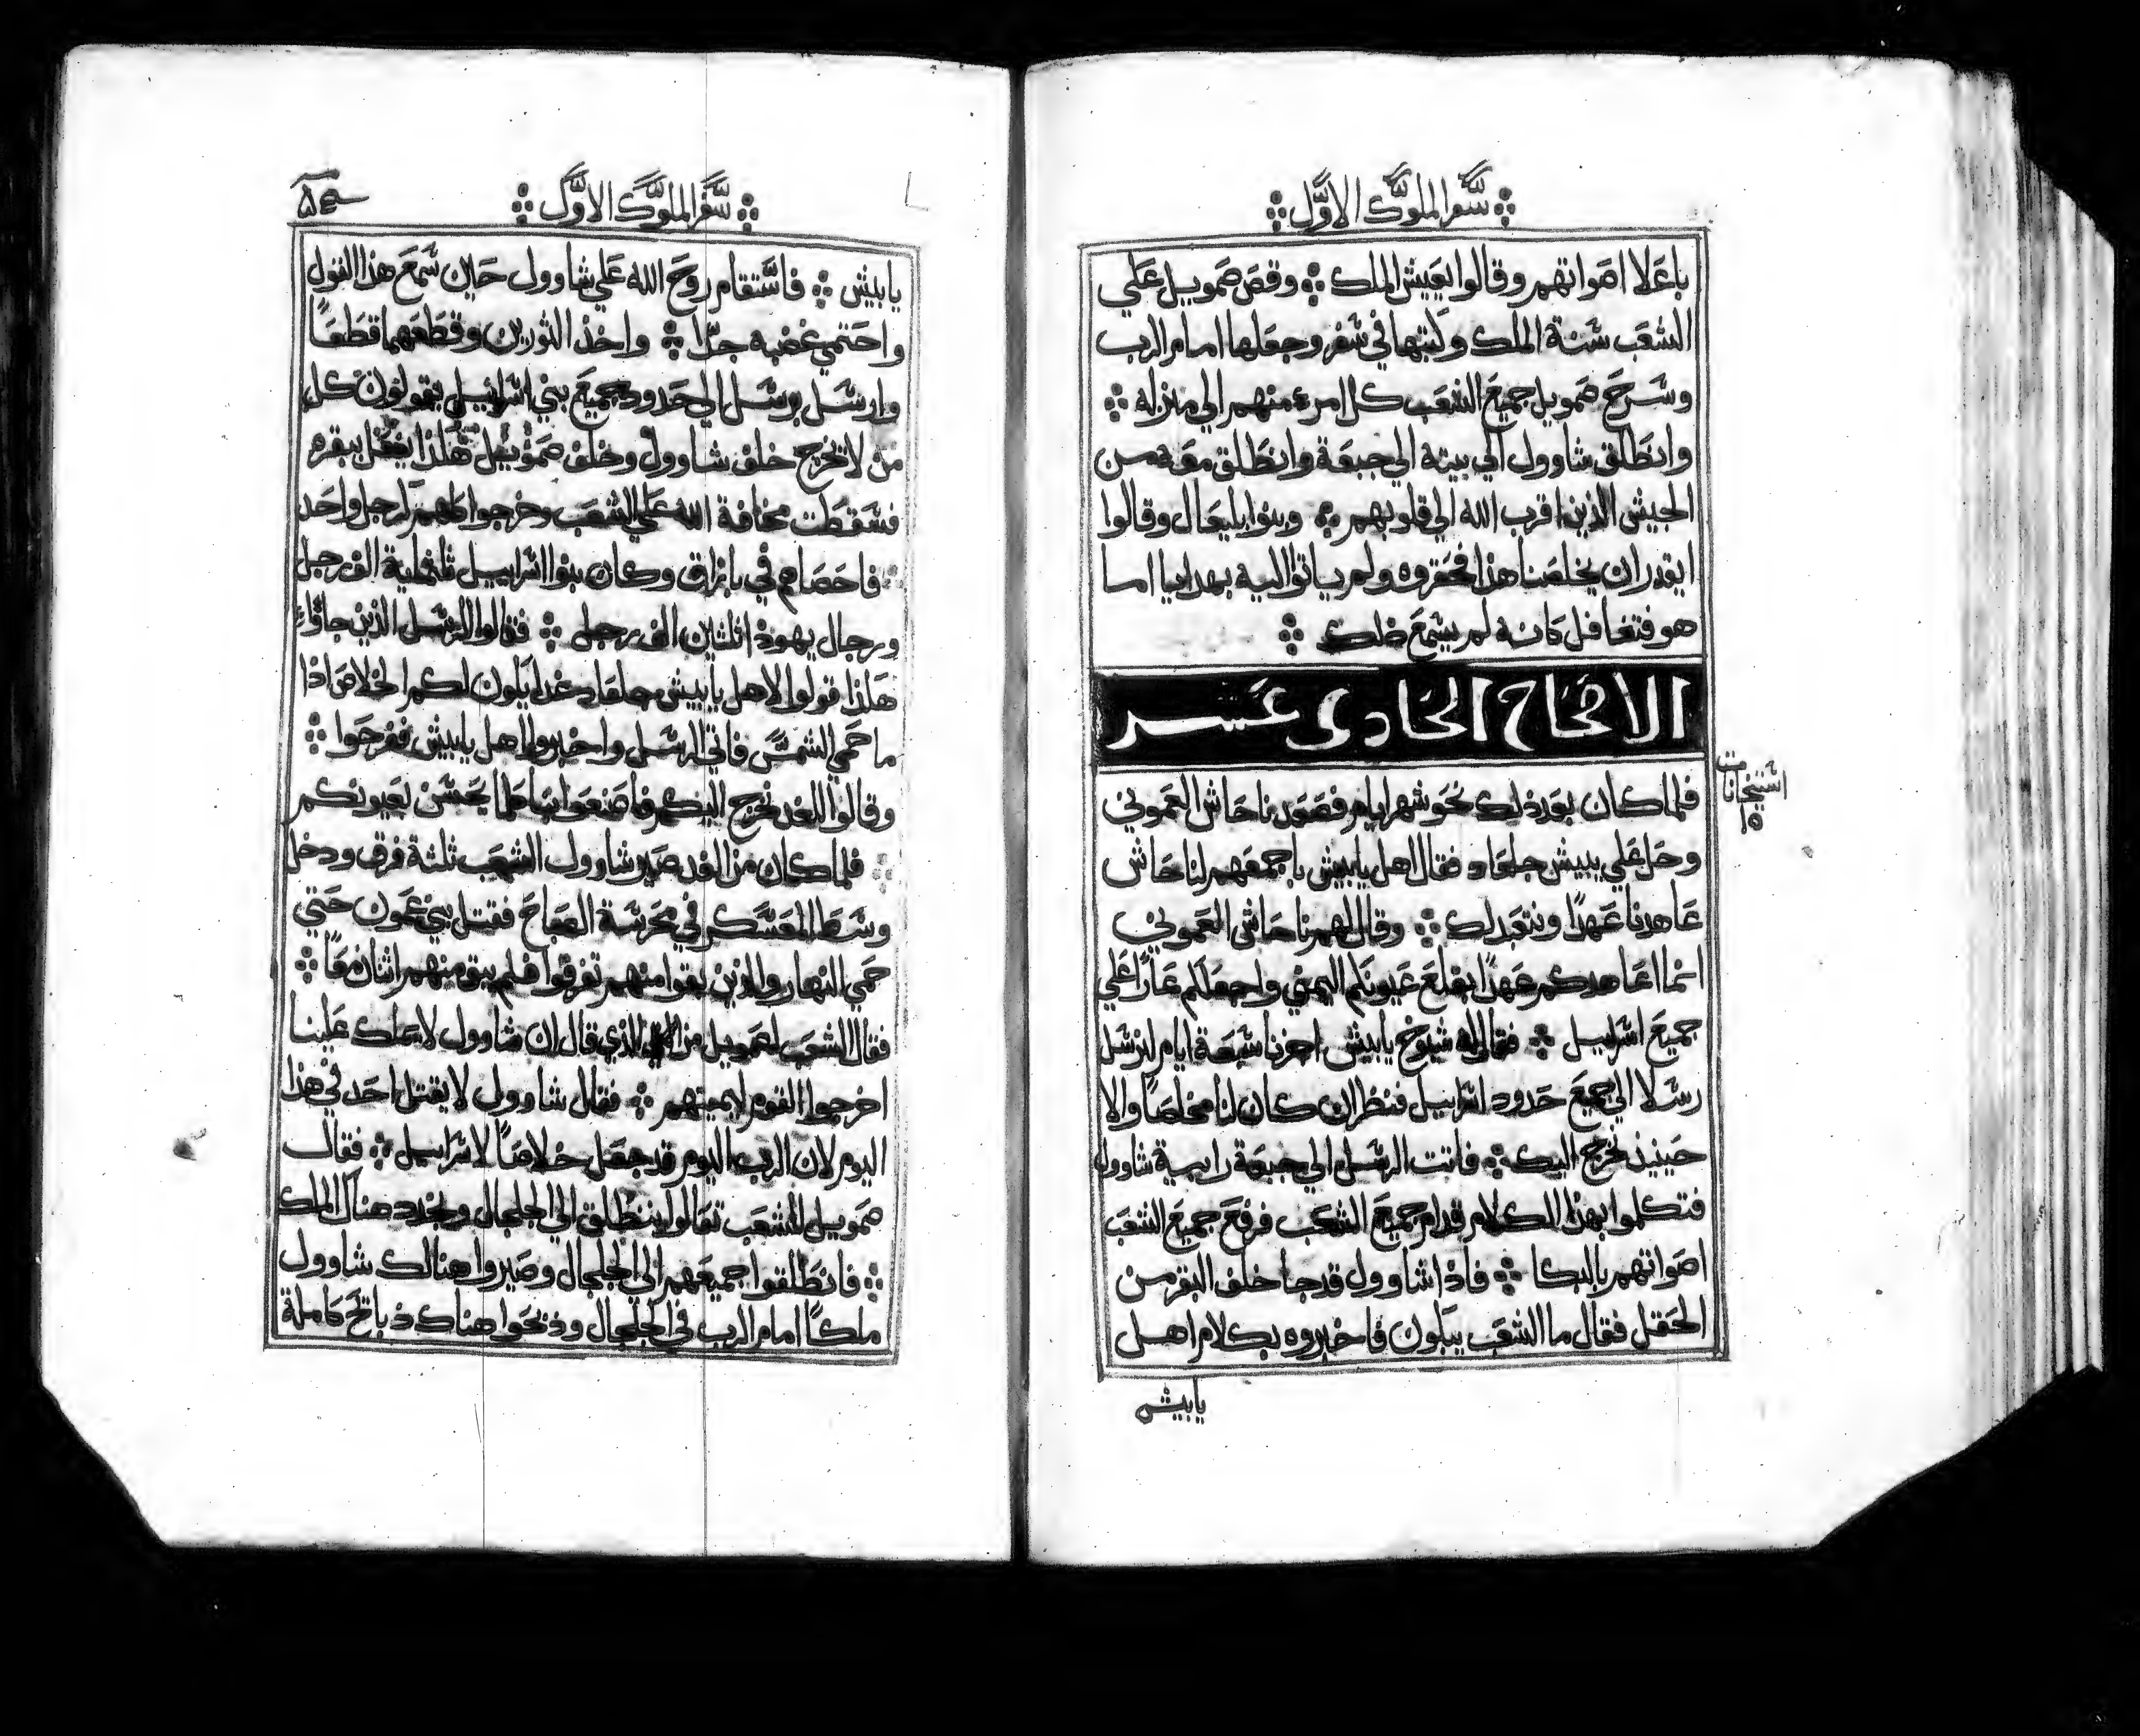 سفر الملوك الاول
باعلا اصواتهم وقالوا يعيش الملك وقص صمويل علي
الشعب سنة الملك وكتبها في سفر وجعلها امام الرب
وسرح صمويل جميع الشعب كل امرء منهم الي منزله
وانطلق شاوول الي بيته الي جبعة وانطلق معه من
الجيش الذين اقرب الله الي قلوبهم وبنوا بليعال وقالوا
ايقدر ان يخلصنا هذا فحقروه ولم ياتوا اليه بهدايا اما
هو فتغافل كانه لم يسمع ذلك
الاصحاح الحادي عشر
استيخانات
١٥
فلما كان بعد ذلك نحو شهر ايام فصعد ناحاش العموني
وحل علي يبيش جلعاد فقال اهل يابيش باجمعهم لناحاش
عاهدنا عهدًا ونتعبد لك وقال لهم ناحاش العموني
انما اعاهدكم عهدًا بقلع عيونكم اليمني واجعلكم عارًا علي
جميع اسراييل فقال له شيوخ يابيش اجرنا سبعة ايام لنرسل
رسلا الي جميع حدود اسراييل فننظر ان كان لنا مخلصًا والا
حينيذ نخرج اليك فاتت الرسل الي جبعة رابية شاوول
فتكلموا بهذا الكلام قدام جميع الشعب فرفع جميع الشعب
اصواتهم بالبكا فاذا شاوول قد جا خلف البقر من
الحقل فقال ما الشعب يبكون فاخبروه بكلام اهل
يابيش
سفر الملوك الاول
يابيش فاستقام روح الله علي شاوول حين سمع هذا القول
واحتمي غضبه جدًا واخذ الثورين وقطعهما قطعًا
وارسل برسل الي حدود جميع بني اسراييل يقولون كل
من لا يخرج خلف شاوول وخلف صموييل هكذا يفعل ببقره
فسقطت مخافة الله علي الشعب وخرجوا كلهم كرجل واحد
فاحصاهم في بازاق وكان بنوا اسراييل ثلثماية الف رجل
ورجال يهودا ثلثين الف رجل فقالوا للرسل الذين جاؤا
هكذا قولوا لاهل يابيش جلعاد غدا يكون لكم الخلاص اذا
ما حمي الشمس فاتي الرسل واخبروا اهل يابيش ففرحوا
وقالوا الغد نخرج اليكم فاصنعوا بنا كلما يحسن بعيونكم
فلما كان من الغد صير شاوول الشعب ثلثة فرق ودخل
وسط المعسكر في محرسة الصباح فقتل بني عمون حتي
حمي النهار والذين بقوا منهم تفرقوا فلم يبق منهم اثنان معًا
فقال الشعب لصمويل من الذي قال ان شاوول لا يملك علينا
اخرجوا القوم لنميتهم فقال شاوول لا يقتل احد في هذا
اليوم لان الرب اليوم قد جعل خلاصًا لاسراييل فقال
صمويل للشعب تعالوا ننطلق الي الجلجال ونجدد هناك الملك
فانطلقوا جميعهم الي الجلجال وصيروا هنالك شاوول
ملكًا امام الرب في الجلجال وذبحوا هناك ذبائح كاملة